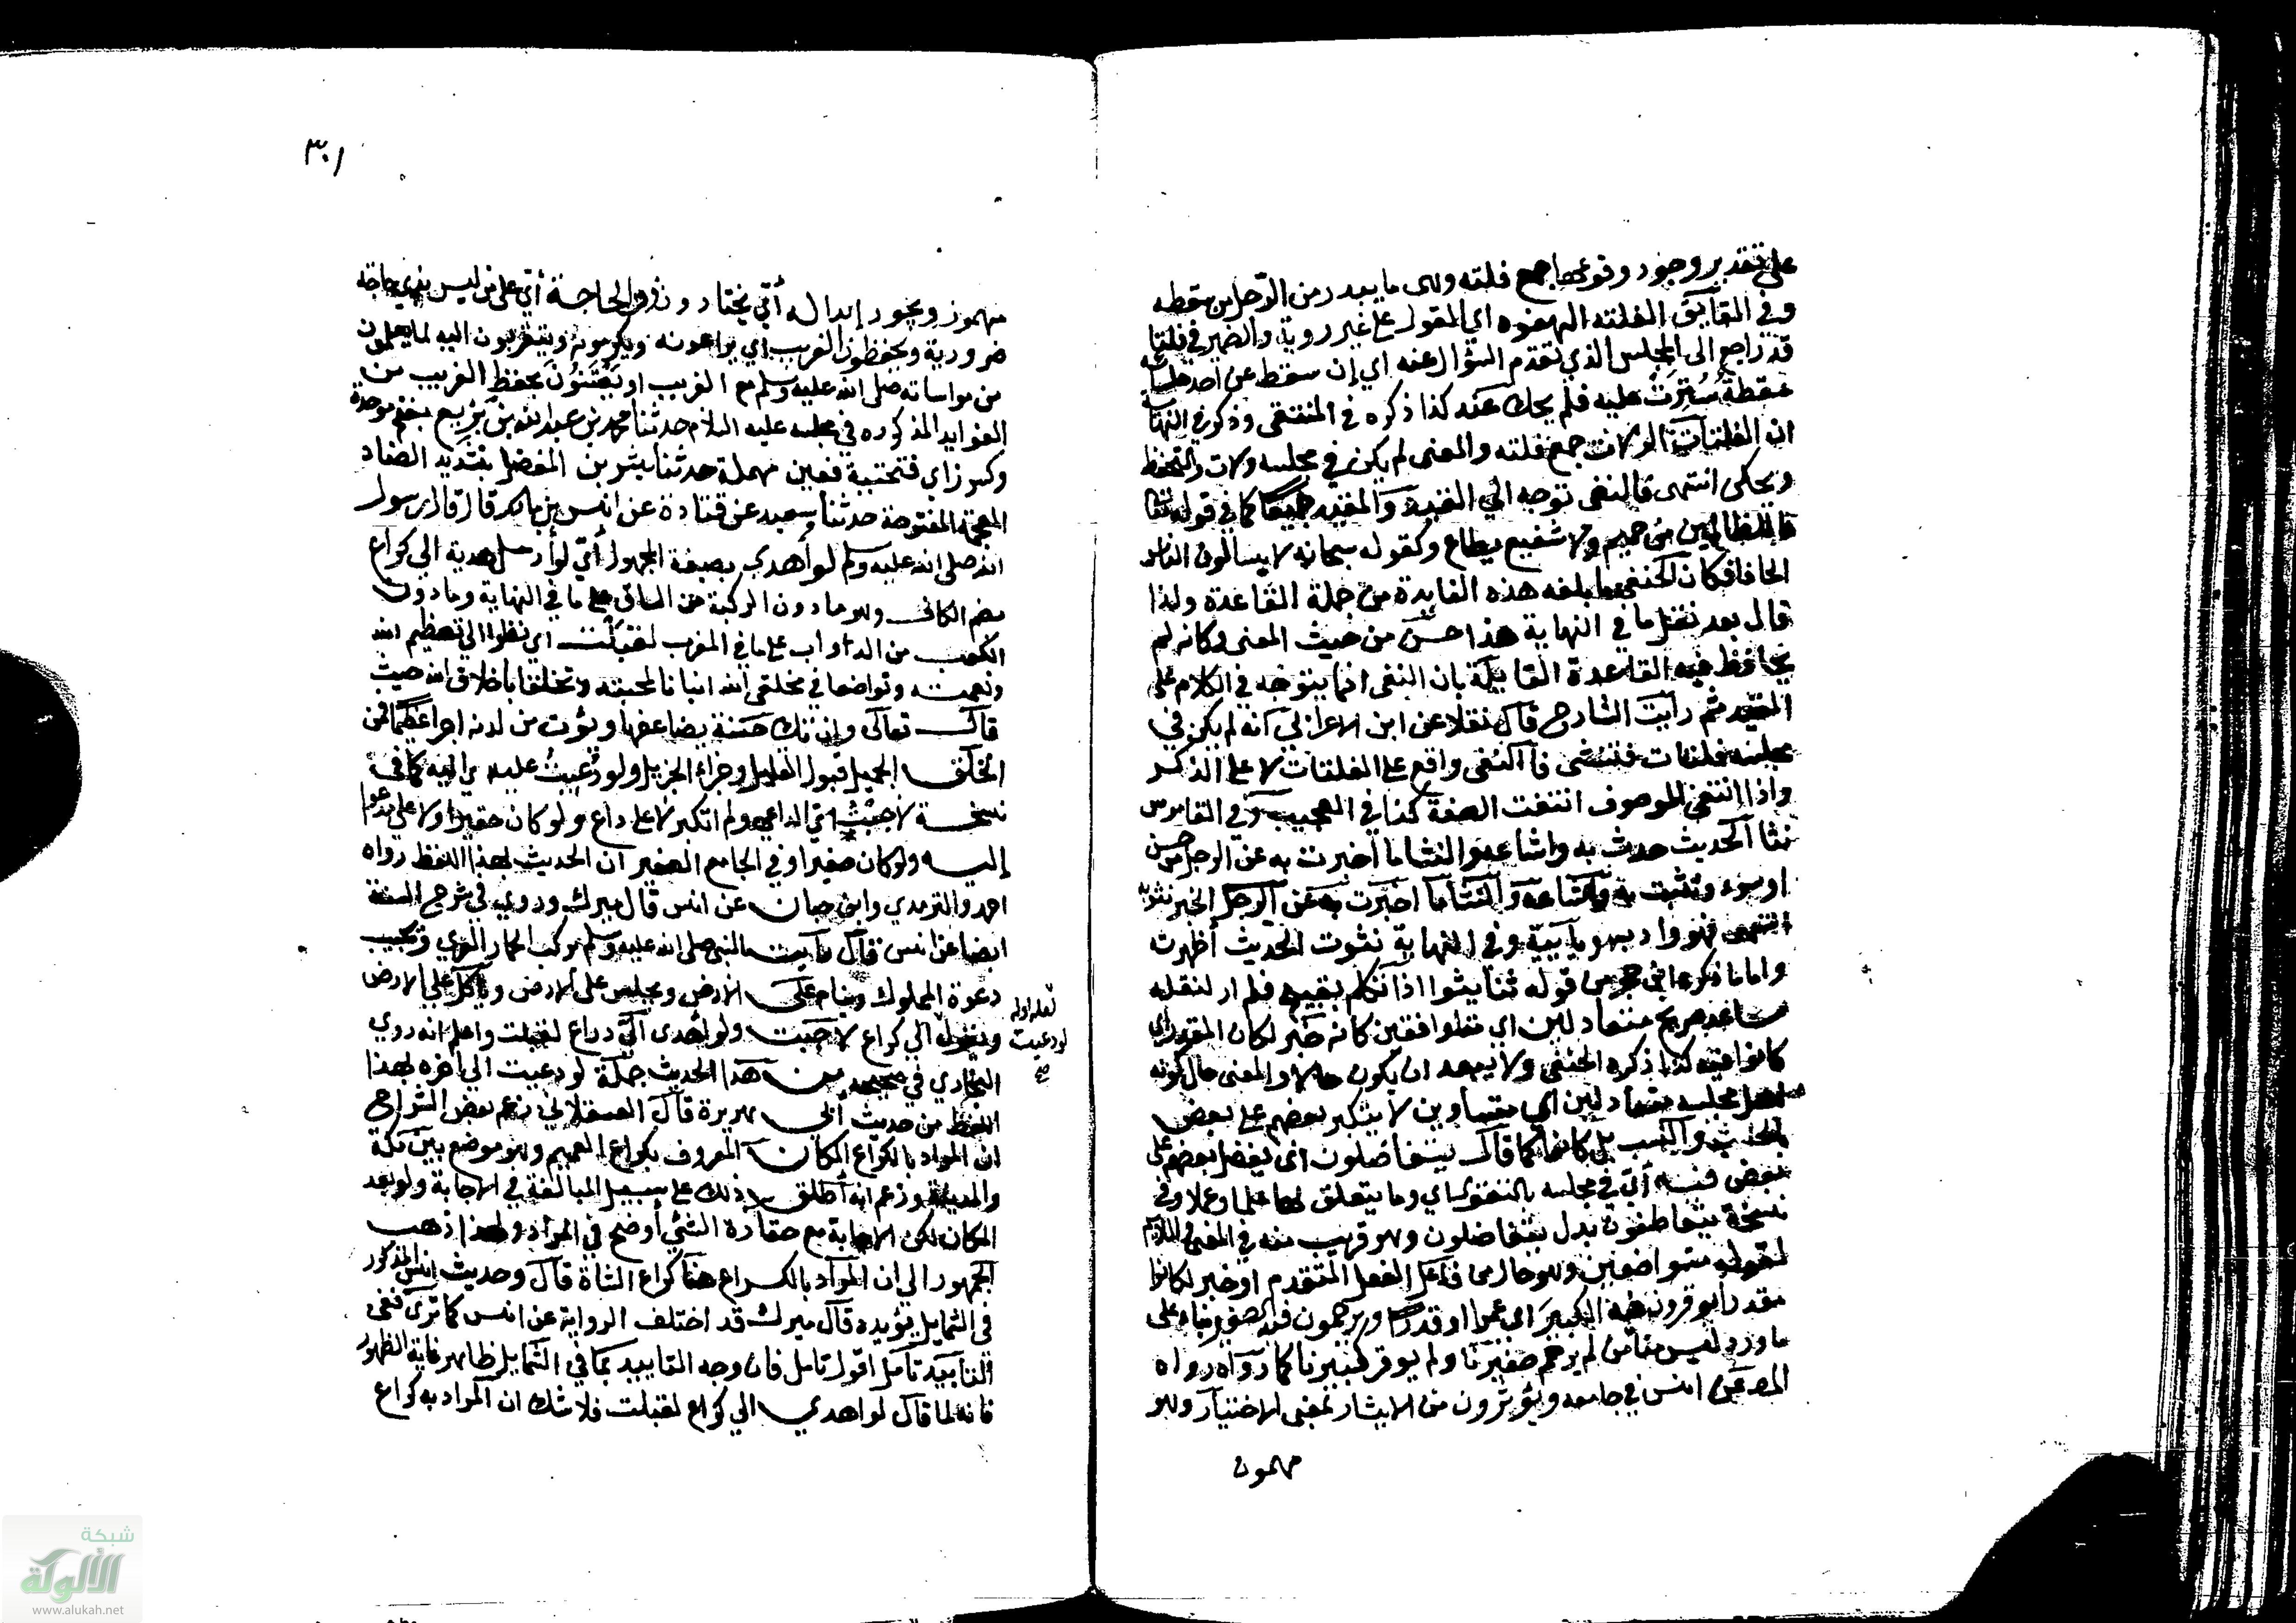 على تقدير وجود وقوعها جمع فلتة وهى ما يبدر من الرجل من سقطه
وفي الفايق الفلتة الهفوة اي المقول على غير روية والضمير في فلتاته
قد راجع الى المجلس الذي تقدم السؤال عنه اي إن سقط عن احد جلسائه
سقطة سُتِرَت عليه فلم يحك عنه كذا ذكره في المنتقى وذكر في النهاية
ان الفلتات الزلات جمع فلتة والمعنى لم يكن في مجلسه زلات فتحفظ
وتحكى انتهى فالنفي توجه الي القيد والمقيد جميعًا كما في قوله تعالى
ما للظالمين من حميم ولا شفيع يطاع وكقوله سبحانه لا يسالون الناس
الحافا فكان الحنفي ما بلغه هذه الفايدة من جملة القاعدة ولذا
قال بعد نقل ما في النهاية هذا حسن من حيث المعنى وكانه لم
يحافظ فيه القاعدة القايلة بان النفي انما يتوجه في الكلام على
المقيد ثم رايت الشارح قال نقلا عن ابن الاعرابي انه لم يكن في
مجلسه فلتات فتنثى فالنفي واقع على الفلتات لا على الذكر
واذا انتفى الموصوف انتفت الصفة كذا في العجيب وفي القاموس
نثا الحديث حدث به واشاعه والنثا ما اخبرت به عن الرجل من حسن
او سوء
انتهى فهو واد يهو يايية وفي النهاية نثوت الحديث أظهرت
واما ما ذكره ابن حجر من قوله ثنا يثوا اذا تكلم بقبيح فلم ار لنقله
مساعد صريح متعادلين اي متوافقين كانه خبر لكان المقدر اي
كانوا فيه كذا ذكره الحنفي ولا يبعد ان يكون حالا والمعنى حال كونه
اهل مجلسه متعادلين اي متساوين لا يتكبر بعضهم على بعض
بالحسب والنسب بل كانوا كما قال يتفاضلون اي يفضل بعضهم على
بعض فيه أي في مجلسه بالتقوى اي وما يتعلق بها علما وعملا وفي
نسخة يتعاطفون بدل يتفاضلون وهو قريب منه في المعنى الملازم
لقوله متواضعين وهو حال من فاعل الفعل المتقدم او خبر لكانوا
مقدرا يوقرون فيه الكبير اي عمرا او قدرا ويرحمون فيه الصغير بناء على
ما ورد ليس منا من لم يرحم صغيرنا ولم يوقر كبيرنا كما رواه
المص عن انس في جامعه ويؤثرون من الايثار بمعنى الاختيار وهو
مهموز
٣٠١
مهموز ويجوز إبداله أي يختارون ذا الحاجة أي على من ليس بذي حاجة
ضرورية ويحفظون الغريب اي يراعونه ويكرمونه ويتقربون اليه لما يعلمون
من مواساته صلى الله عليه وسلم مع الغريب او يعتنون بحفظ الغريب من
الفوايد المذكورة في مجلسه عليه السلام حدثنا محمد بن عبد الله بن بزيع بفتح موحدة
وكسر زاي فتحتية فعين مهملة حدثنا بشر بن المفضل بتشديد الضاد
المعجمة المفتوحة حدثنا سعيد عن قتادة عن انس بن مالك قال قال رسول
الله صلى الله عليه وسلم لو أهدي بصيغة المجهول أي لو أرسل هدية الي كراع
بضم الكاف وهو ما دون الركبة من الساق على ما في النهاية وما دون
الكعب من الدواب على ما في المغرب لقبلت اي نظرا الي تعظيم الله
ونعمته وتواضعا في مخلقى الله اتيانا لمحبته وتخلقا باخلاق الله حيث
قال تعالى وان تك حسنة يضاعفها ويؤت من لدنه اجرا عظيما فمن
الخلق الجميل قبول القليل وجزاء الجزيل ولو دُعيت عليه اي اليه كما في
نسخة لاجبت أي الداعي ولم اتكبر لا على داع ولو كان حقيرا ولا على مدعوا
إليه ولو كان صغيرا وفي الجامع الصغير ان الحديث بهذا اللفظ رواه
احمد والترمذي وابن حبان عن انس قال ميرك وروي في شرح السنة
ايضا عن انس قال رأيت النبي صلى الله عليه وسلم يركب الحمار العري ويجيب
دعوة المملوك وينام على الارض ويجلس على الارض وياكل على الارض
ويقول الي كراع لاجبت ولو أهدى الي ذراع لقبلت واعلم انه روي
لعله
لو دعيت
صح
البخاري في صحيحه من هذا الحديث جملة لو دعيت الي آخره بهذا
اللفظ من حديث أبي هريرة قال العسقلاني زعم بعض الشراح
ان المراد بالكراع المكان المعروف بكراع الغميم وهو موضع بين مكة
والمدينة وزعم انه أطلق ذلك على سبيل المبالغة في الاجابة ولو بعد
المكان لكن الاجابة مع حقارة الشيء أوضح في المراد ولهذا ذهب
الجمهور الي ان المراد بالكراع هنا كراع الشاة قال وحديث انس المذكور
في الشمايل يؤيده قال ميرك قد اختلف الرواية عن انس كما ترى ففي
التأييد تأمل اقول تامل فان وجه التاييد بما في الشمايل ظاهر غاية الظهور
فانه لما قال لو اهدي الي كراع لقبلت فلا شك ان المراد به كراع
شبكة
الألوكة
www.alukah.net